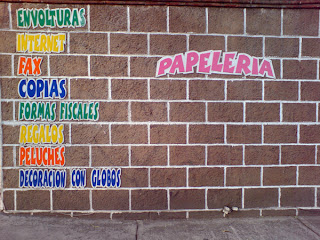 ENVOLTURAS
INTERNET
FAX
COPIAS
FORMAS FISCALES
REGALOS
PELUCHES
DECORACION CON GLOBOS
PAPELERIA